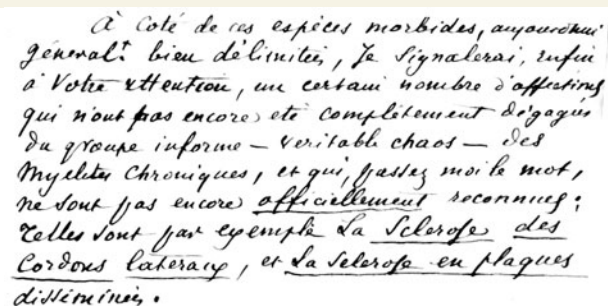 À coté de ces espèces morbides, aujourd'hui
général.t bien délimitées, Je signalerai, enfin
à Votre attention, un certain nombre d'affections
qui n'ont pas encore été complètement dégagées
du groupe informe – veritable chaos – des
Myelites Chroniques, et qui, passez moi le mot,
ne sont pas encore officiellement reconnues;
Telles sont par exemple La Sclerose des
Cordons lateraux, et La Sclerose en plaques
disséminées.